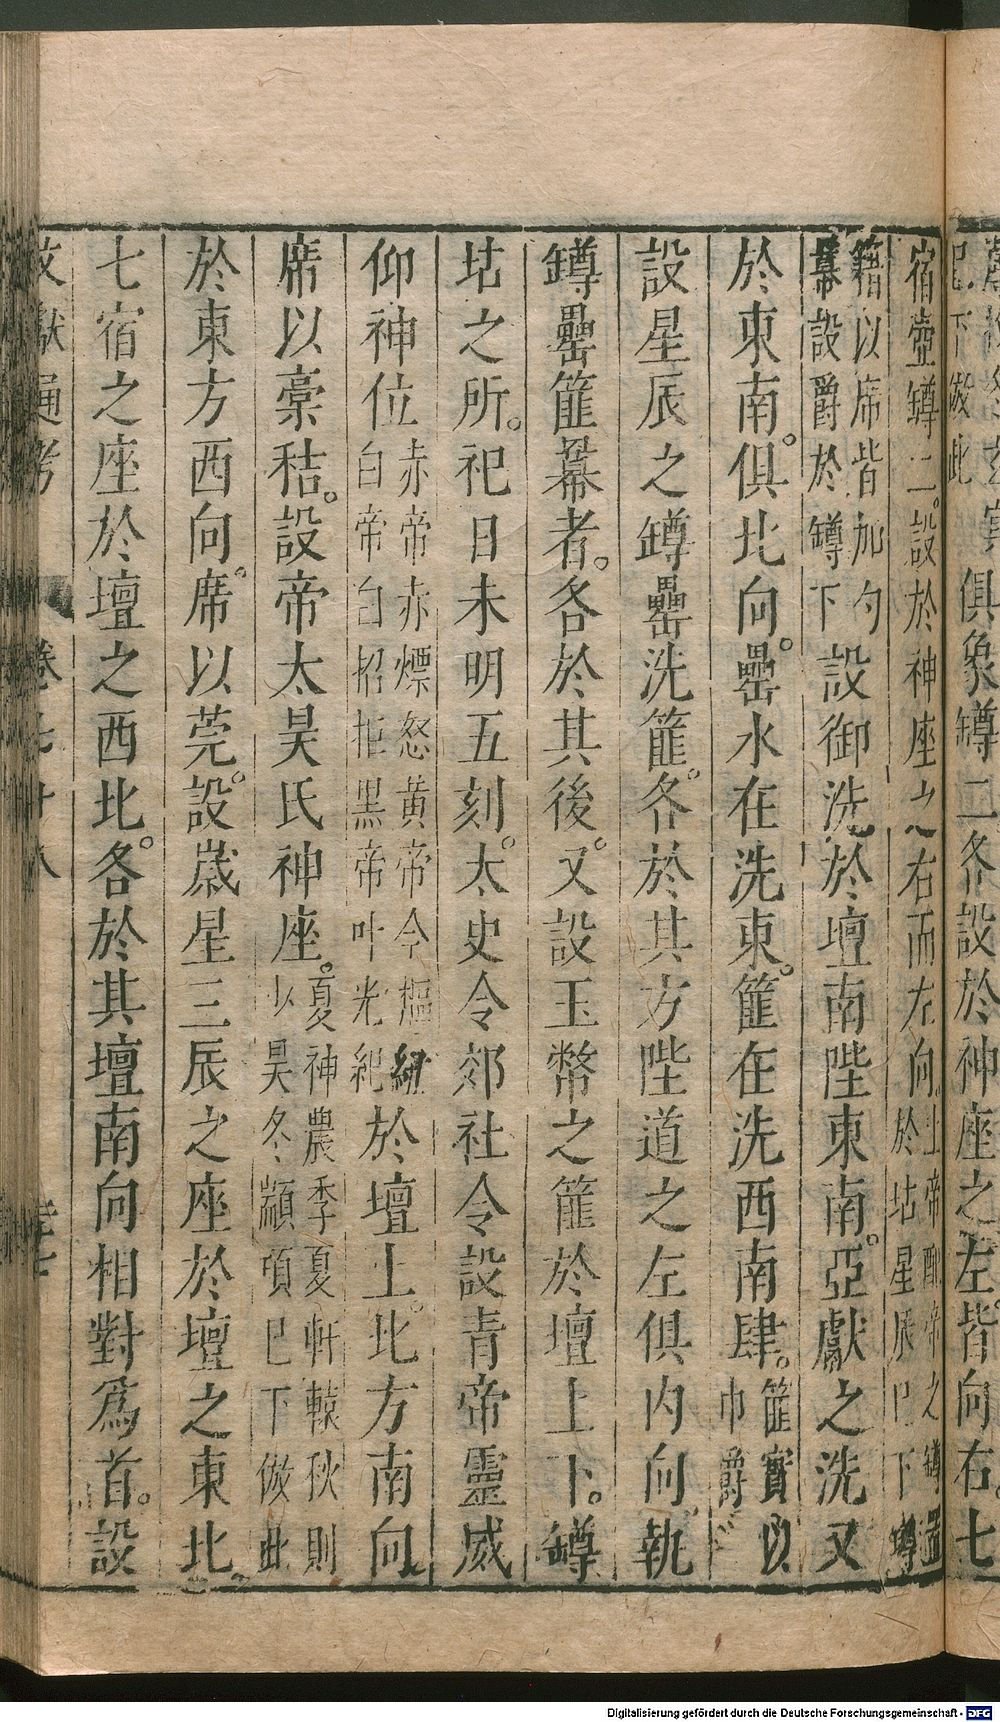 俱象罇二各設於神座之左皆向右七
宿壺罇二設於神座之右而左向上帝配帝之罇置於坫星辰已下罇
籍以席皆加勺冪設爵於罇下設御洗於壇南陛東南亞獻之洗又
於東南俱北向罍水在洗東篚在洗西南肆篚實以巾爵
設星辰之罇罍洗篚各於其方陛道之左俱内向執
罇罍篚冪者各於其後又設玉幣之篚於壇上下罇
坫之所祀日未明五刻太史令郊社令設青帝靈威
仰神位赤帝赤熛怒黄帝含樞紐白帝白招拒黑帝叶光紀於壇上北方南向
席以藁秸設帝太昊氏神座夏神農季夏軒轅秋則少昊冬顓頊已下倣此
於東方西向席以莞設歲星三辰之座於壇之東北
七宿之座於壇之西北各於其壇南向相對爲首設
文獻通考 卷七十八
Digitalisierung gefördert durch die Deutsche Forschungsgemeinschaft - DFG